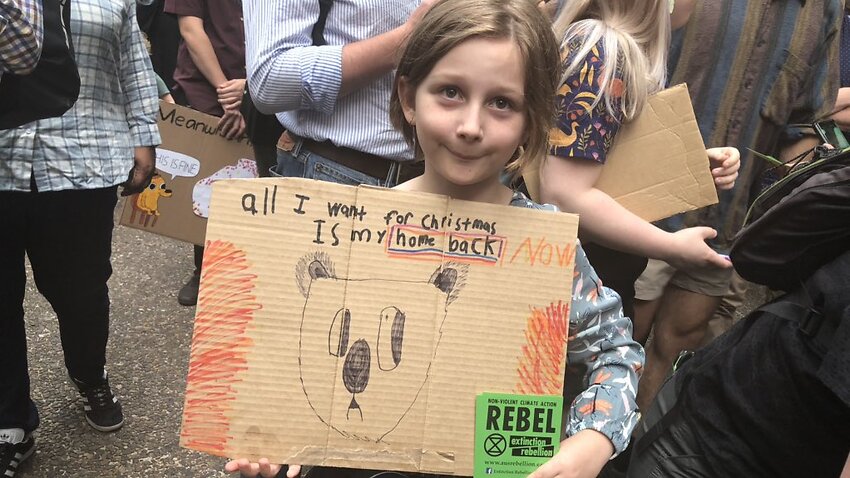 Meanwhile
THIS IS FINE
all I want for christmas
Is my home back NOW
NON-VIOLENT CLIMATE ACTION
REBEL
extinction
rebellion
www.ausrebellion.
Extinction Rebellion